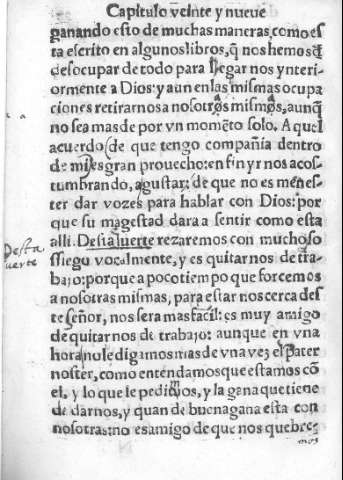 Capitulo veinte y nueue
ganando esto de muchas maneras, como es-
ta escrito en algunos libros, q̃ nos hemos
desocupar de todo para llegar nos ynteri-
ormente a Dios: y aun en las mismas ocupa
ciones retirarnos a nosotros mismos, aunq̃
no sea mas de por vn momẽto solo. Aquel
acuerdo (de que tengo compañia dentro
de mi) es gran prouecho: en fin yr nos acos-
tumbrando, a gustar: de que no es menes-
ter dar vozes para hablar con Dios: por
que su magestad dara a sentir como esta
alli. Desta suerte rezaremos con mucho so
ssiego vocalmente, y es quitarnos de tra-
bajo: porque a poco tiempo que forcemos
a nosotras mismas, para estar nos cerca des
te señor, nos sera mas facil: es muy amigo
de quitarnos de trabajo: aunque en vna
hora no le digamos mas de vna vez el pater
noster, como entendamos que estamos cõ
el, y lo que le pedimos, y la gana que tiene
de darnos, y quan de buena gana esta con
nosotras: no es amigo de que nos quebre-
mos
Desta
uerte